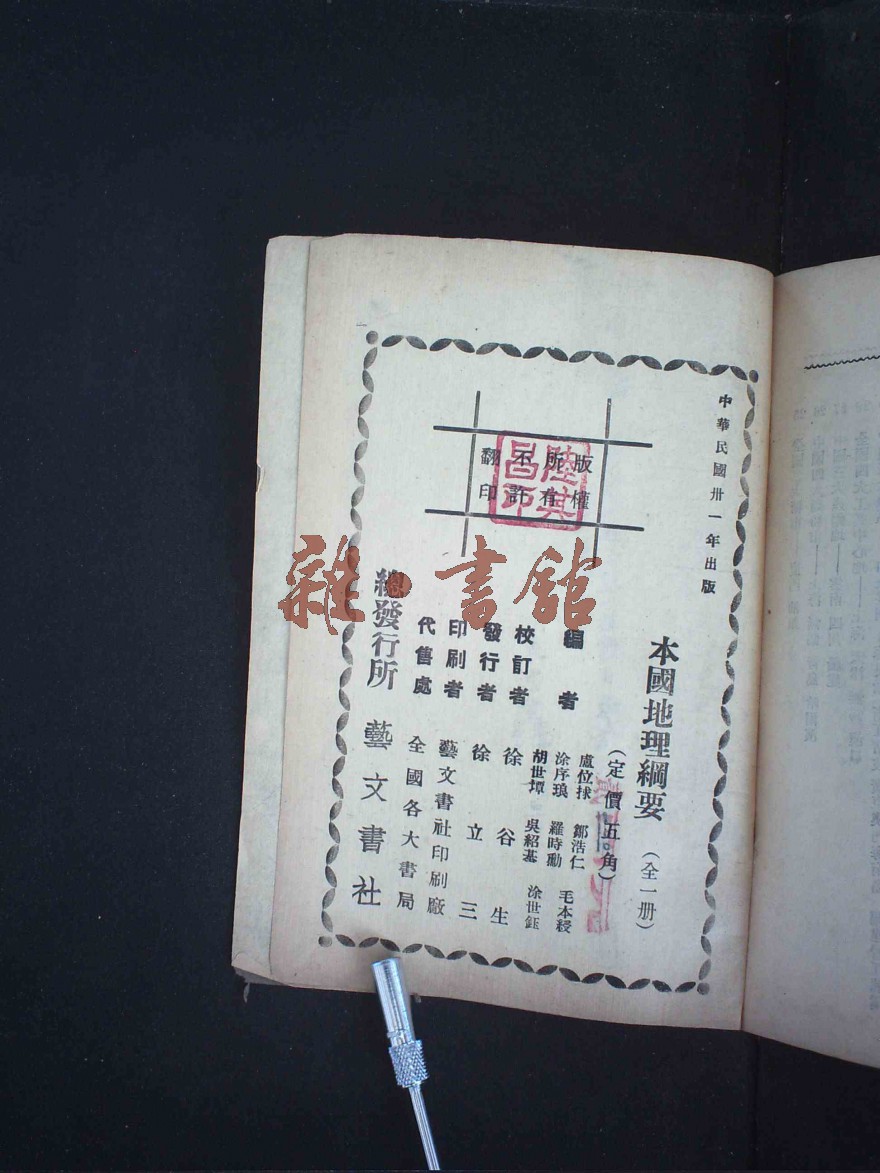 中華民國卅一年出版
本國地理綱要（全一册）
（定價五角）
編者
盧位捄 鄒浩仁 毛本綬
涂序琅 羅時勳
胡世墰 吳紹基 涂世鈺
校訂者 徐谷生
發行者 徐立三
印刷者 藝文書社印刷廠
代售處 全國各大書局
總發行所 藝文書社
版權
所有
不許
翻印
陸基
昌印
雜·書舘